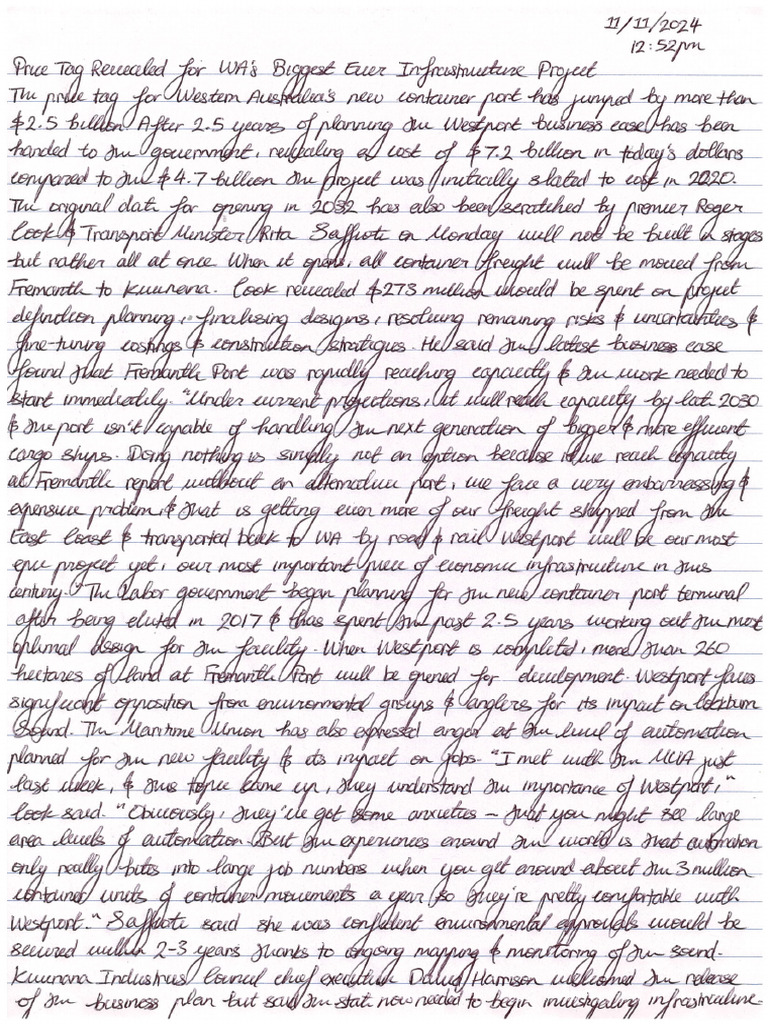 11/11/2024
12:52pm
Price Tag Revealed for WA's Biggest Ever Infrastructure Project
The price tag for Western Australia's new container port has jumped by more than
$2.5 billion. After 2.5 years of planning the Westport business case has been
handed to the government, revealing a cost of $7.2 billion in today's dollars
compared to the $4.7 billion the project was initially slated to cost in 2020.
The original date for opening in 2032 has also been scratched by premier Roger
Cook & Transport Minister Rita Saffioti on Monday will not be built in stages
but rather all at once. When it opens, all container freight will be moved from
Fremantle to Kwinana. Cook revealed $273 million would be spent on project
definition planning, finalising designs, resolving remaining risks & uncertainties &
fine-tuning costings & construction strategies. He said the latest business case
found that Fremantle Port was rapidly reaching capacity & the work needed to
start immediately. "Under current projections, it will reach capacity by late 2030
& the port isn't capable of handling the next generation of bigger & more efficient
cargo ships. Doing nothing is simply not an option because if we reach capacity
at Fremantle report without an alternative port, we face a very embarrassing &
expensive problem, & that is getting even more of our freight shipped from the
East Coast & transported back to WA by road & rail. Westport will be our most
epic project yet, our most important piece of economic infrastructure in this
century." The Labor government began planning for the new container port terminal
after being elected in 2017 & has spent the past 2.5 years working out the most
optimal design for the facility. When Westport is completed, more than 260
hectares of land at Fremantle Port will be opened for development. Westport faces
significant opposition from environmental groups & anglers for its impact on Cockburn
Sound. The Maritime Union has also expressed anger at the level of automation
planned for the new facility & its impact on jobs. "I met with the MUA just
last week, & this topic came up, they understand the importance of Westport,"
Cook said. "Obviously, they've got some anxieties – that you might see large
area levels of automation. But the experiences around the world is that automation
only really bites into large job numbers when you get around about the 3 million
container units of container movements a year so they're pretty comfortable with
Westport." Saffioti said she was confident environmental approvals would be
secured within 2-3 years thanks to ongoing mapping & monitoring of the sound.
Kwinana Industries Council chief executive David Harrison welcomed the release
of the business plan but said the state now needed to begin investigating infrastructure-